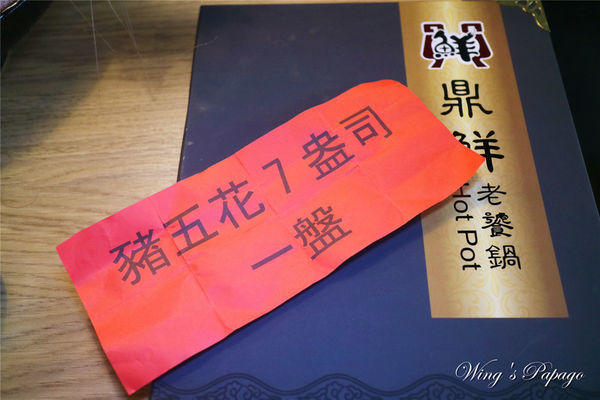 豬五花7盎司
一盤
鮮
鼎鮮
老饕鍋
Hot Pot
Wing's Papago